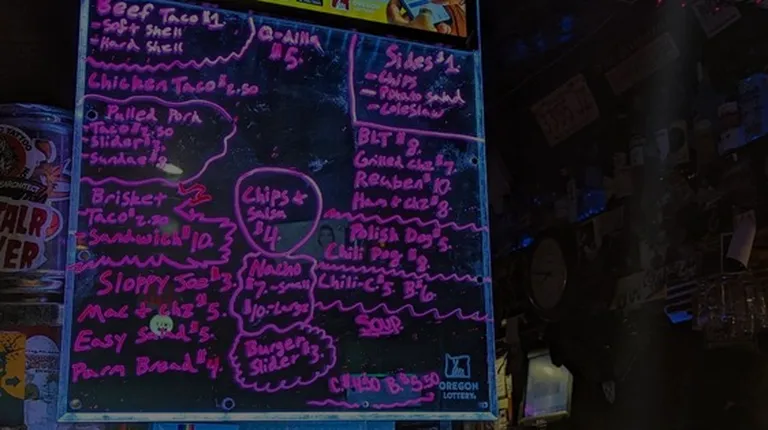 Beef Taco $1
- Soft shell
- Hard shell
Chicken Taco $2.50
Pulled Pork
- Taco $2.50
- Slider $3.
- Sundae $8.
Brisket
- Taco $2.50
- Sandwich $10.
Sloppy Joe $3.
Mac + chz $5.
Easy Salad $5.
Parm Bread $4.
Q-dilla
$5.
Chips +
Salsa
$4.
Nacho
$7.-small
$10.-Large
Burger
Slider $3.
Sides $1.
- Chips
- Potato salad
- Coleslaw
BLT $8.
Grilled chz $7.
Reuben $10.
Ham + chz $8.
Polish Dog $5.
Chili Dog $8.
Chili - C $5 B $6.
Soup
C $4.50 B. $5.50
OREGON
LOTTERY